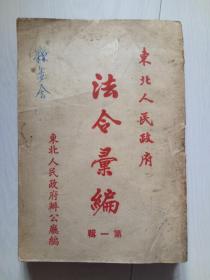 東北人民政府
法令彙編
第一輯
東北人民政府辦公廳編